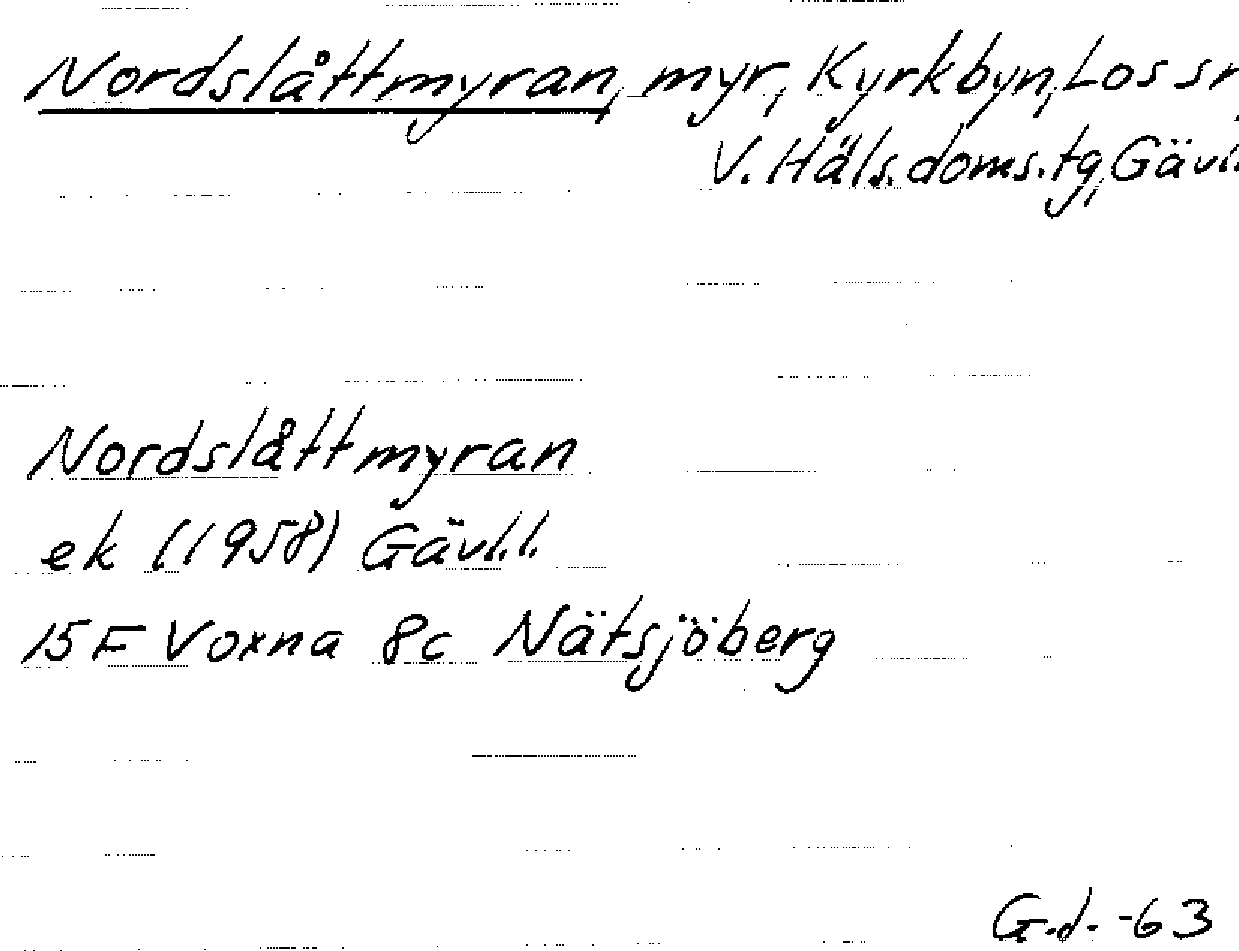 Nordslåttmyran, myr, Kyrkbyn, Los sn,
V. Häls. doms. tg, Gävl.
Nordslåttmyran
ek (1958) Gävl.l.
15F Voxna 8c Nätsjöberg
G.d. -63